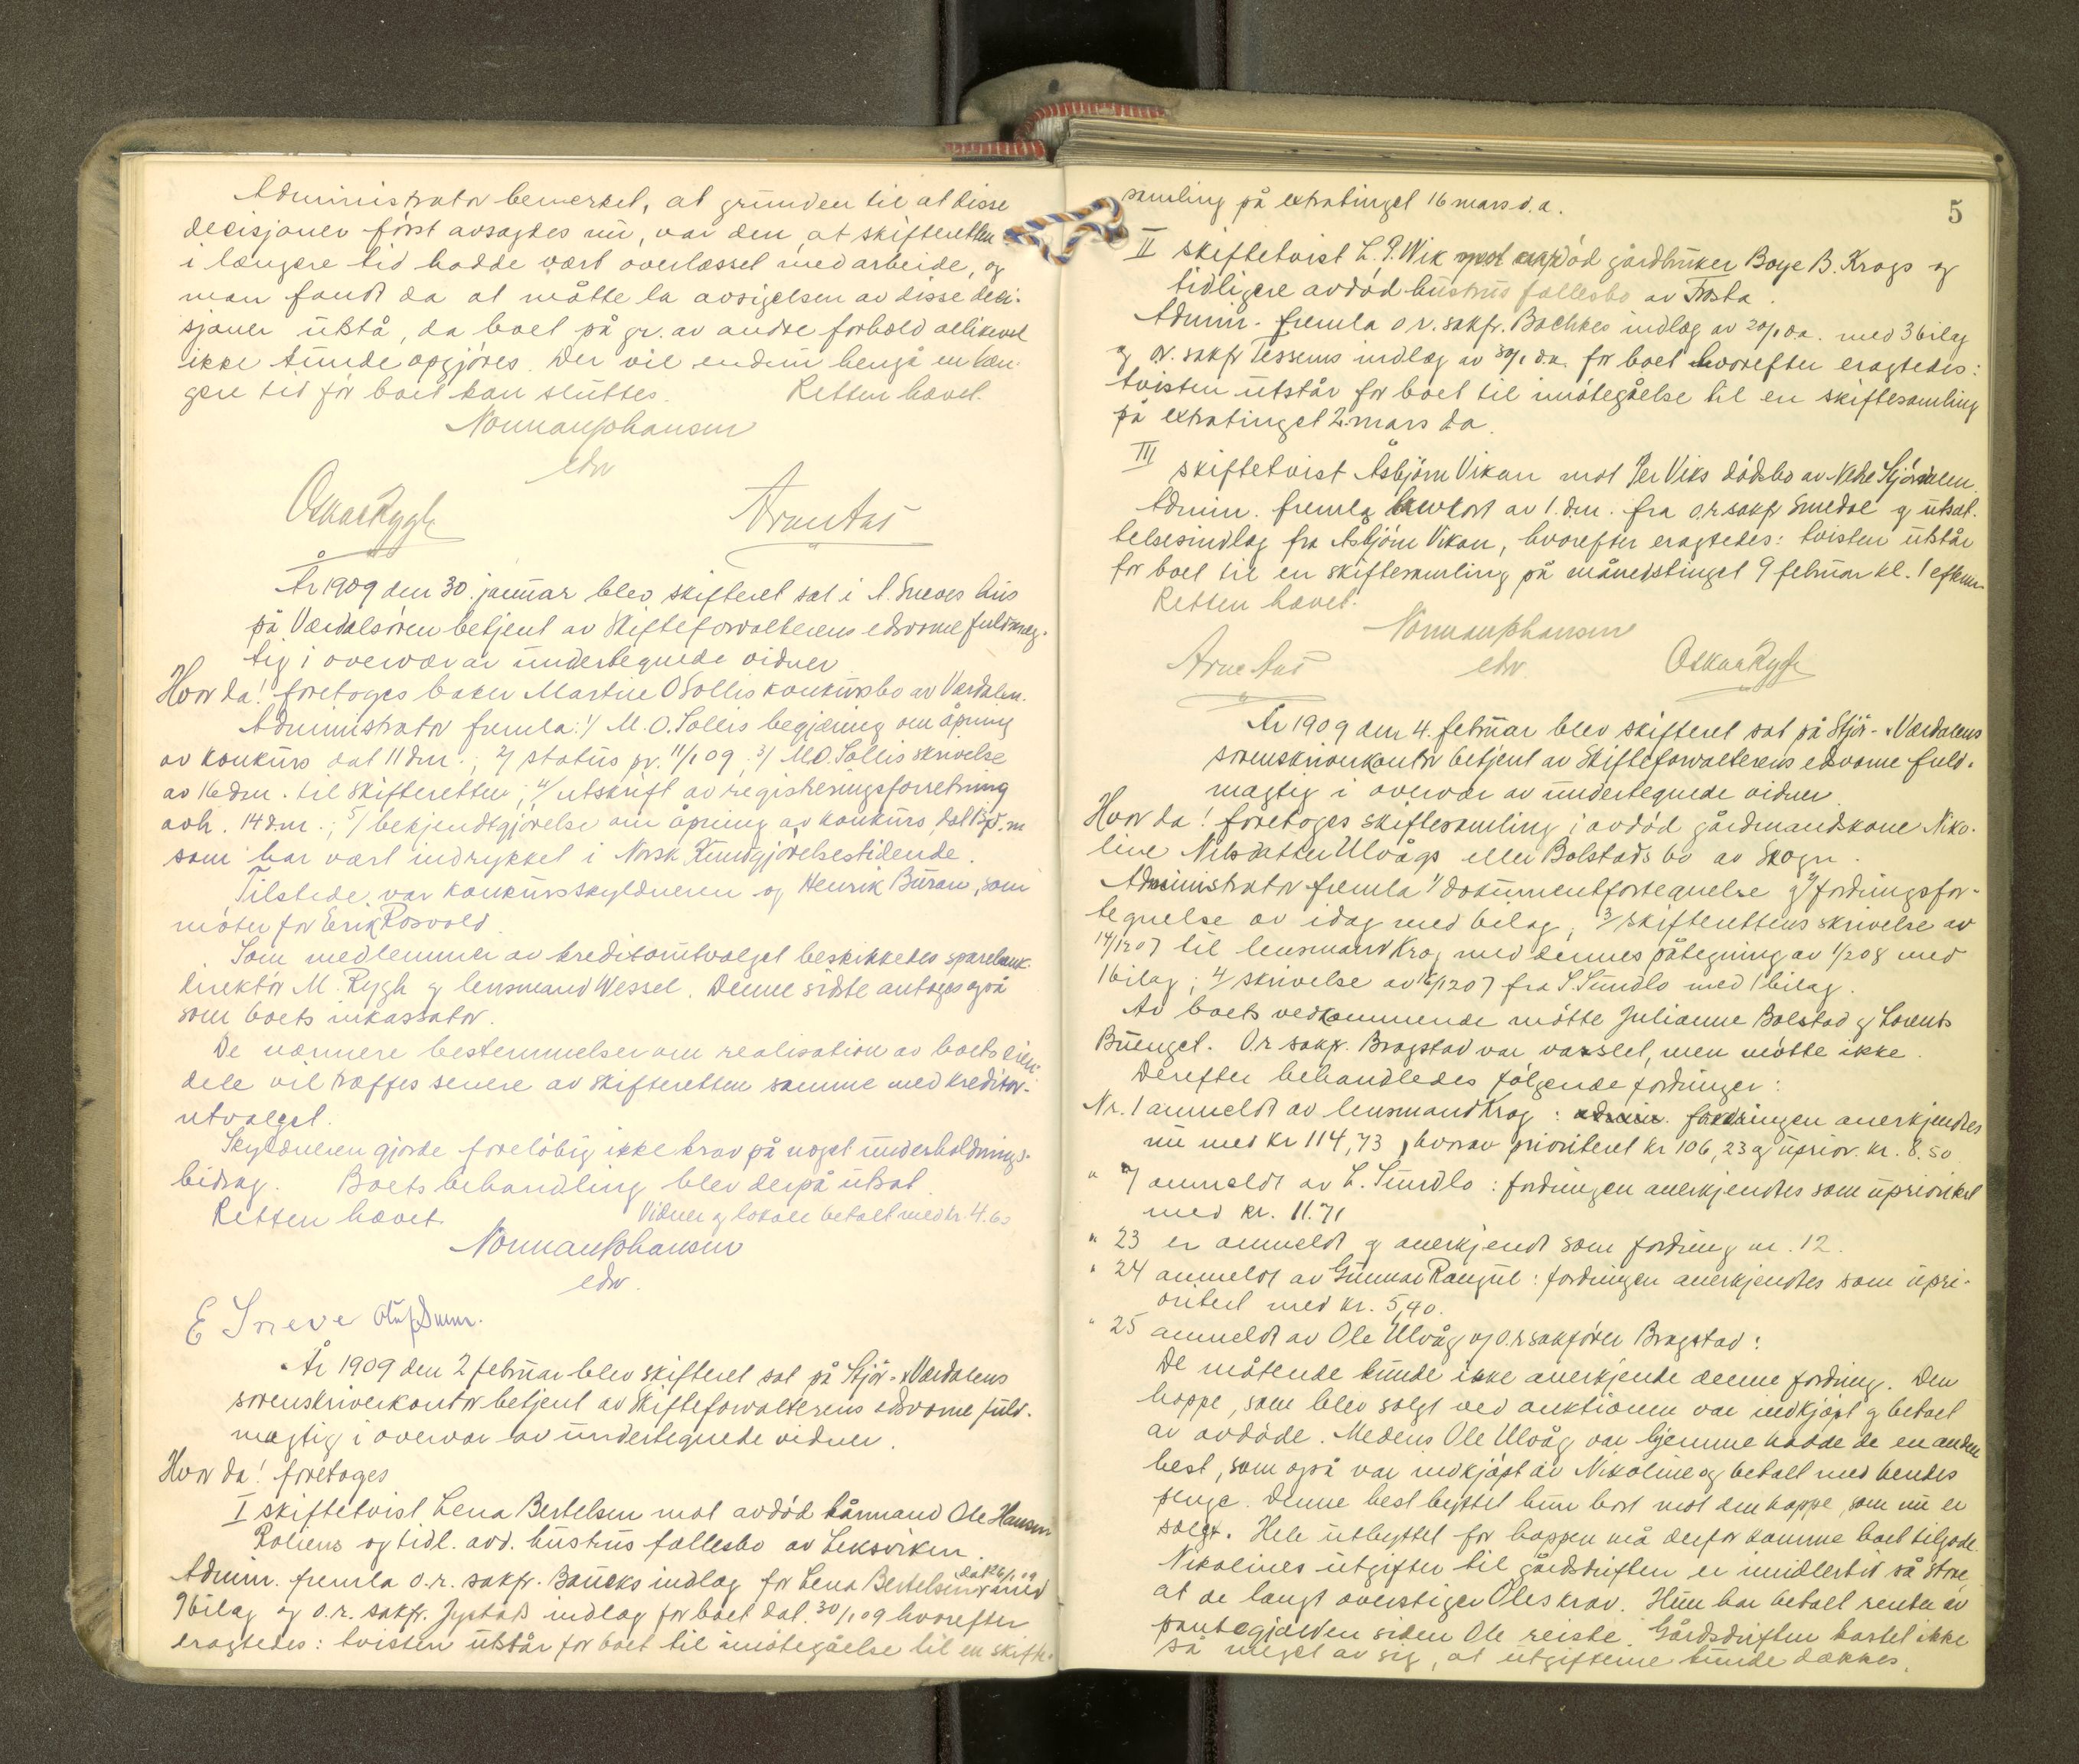 Administrator bemerket, at grunden til at disse
decisjoner först avsagdes nu, var den, at skifteretten
i længere tid hadde vært overlæsset med arbeide, og
man fandt da at måtte la avsigelsen av disse deci-
sjoner utstå, da boet på gr. av andre forhold allikevel
ikke kunde opgjöres. Der vil endnu hengå en læn-
gere tid för boet kan sluttes. Retten hævet.
Norman Johansen
edsv
Oskar Rygh Arne Aas
År 1909 den 30. januar blev skifteret sat i A. Sneves hus
på Værdalsören betjent av Skifteforvalterens edsvorne fuldmæg-
tig i overvær av undertegnede vidner
Hvor da! foretoges baker Martin O Sollis konkursbo av Værdalen.
Administrator fremla: 1/ M. O. Sollis begjæring om åpning
av konkurs dat 11 dm.; 2/ status pr. 11/1 09; 3/ M. O. Sollis skrivelse
av 16 dm. til skifteretten; 4/ utskrift av registreringsforretning
avh. 14 d.m.; 5/ bekjendtgjörelse om åpning av konkurs, dat 13 d. m
som har vært indrykket i Norsk Kundgjörelsestidende.
Tilstede var konkursskyldneren og Henrik Buran, som
möter for Erik Rosvold.
Som medlemmer av kreditorutvalget beskikkedes sparebank-
direktör M. Rygh og lensmand Wessel. Denne sidste antoges også
som boets inkassator.
De nærmere bestemmelser om realisation av boets eien-
dele vil træffes senere av skifteretten sammen med kreditor-
utvalget.
Skyldneren gjorde forelöbig ikke krav på noget underholdnings-
bidrag. Boets behandling blev derpå utsat.
Retten hævet. Vidner og lokale betalt med kr. 4.60
Norman Johansen
edsv.
E Sneve Oluf
År 1909 den 2 februar blev skifteret sat på Stjör- & Værdalens
sorenskriverkontor betjent av Skifteforvalterens edsvorne fuld-
mægtig i overvær av undertegnede vidner.
Hvor da! foretoges
I skiftetvist Lena Bertelsen mot avdöd kårmand Ole Hansen
Roliens og tidl. avd. hustrus fællesbo av Leksviken.
Admin. fremla o.r. sakf. Baucks indlæg for Lena Bertelsen dat 26/1 09 med
9 bilag og o.r. sakf. Jystads indlæg for boet dat. 30/1 09 hvorefter
eragtedes: tvisten utstår for boet til imötegåelse til en skifte-
5
samling på extratinget 16 mars d. a.
II skiftetvist L. P. Wik mot avdöd gårdbruker Boye B. Krogs og
tidligere avdöd hustrus fællesbo av Frosta.
Admin. fremla o.r. sakf. Bachkes indlæg av 20/1 d.a. med 3 bilag
og o.r. sakf Tessems indlæg av 30/1 d.a. for boet hvorefter eragtedes:
tvisten utstår for boet til imötegåelse til en skiftesamling
på extratinget 2. mars da.
III
skiftetvist Asbjörn Vikan mot Per Viks dödsbo av Nedre Stjördalen.
Admin. fremla brevkort av 1. d.m. fra o.r sakf Smedal og utsæt-
telsesindlæg fra Asbjörn Vikan, hvorefter eragtedes: tvisten utstår
for boet til en skiftesamling på månedstinget 9 februar kl. 1 efterm
Retten hævet.
Norman Johansen
Arne Aas edsv. Oskar Rygh
År 1909 den 4. februar blev skifteret sat på Stjör- & Værdalens
sorenskriverkontor betjent av Skifteforvalterens edsvorne fuld-
mægtig i overvær av undertegnede vidner.
Hvor da! foretoges skiftesamling i avdöd gårdmandskone Niko-
line Nilsdatter Ulvågs eller Bolstads bo av Skogn.
Administrator fremla 1/ dokumentfortegnelse og 2/ fordringsfor-
tegnelse av idag med bilag, 3/ skifterettens skrivelse av
14/12 07 til lensmand Krog med dennes påtegning av 1/2 08 med
1 bilag; 4/ skrivelse av 16/12 07 fra L. Sundlo med 1 bilag.
Av boets vedkommende mötte Julianne Bolstad og Lorents
Buenget. O.r sakf. Bragstad var varslet, men mötte ikke.
Derefter behandledes fölgende fordringer:
Nr. 1 anmeldt av lensmand Krog: admin. fordringen anerkjendtes
nu med kr 114,73, hvorav prioritert kr 106,23 og uprior. kr. 8.50
" 7 anmeldt av L. Sundlo: fordringen anerkjendtes som uprioritert
med kr. 11.71
" 23 er anmeldt og anerkjendt som fordring nr. 12.
" 24 anmeldt av Gunnar Rangul: fordringen anerkjendtes som upri-
oritert med kr. 5,40.
" 25 anmeldt av Ole Ulvåg v/ O.r sakförer Bragstad:
De mötende kunde ikke anerkjende denne fordring. Den
hoppe, som blev solgt ved auktionen var indkjöpt og betalt
av avdöde. Medens Ole Ulvåg var hjemme hadde de en anden
hest, som også var indkjöpt av Nikoline og betalt med hendes
penge. Denne hest byttet hun bort mot den hoppe, som nu er
solgt. Hele utbyttet for hoppen må derfor komme boet tilgode.
Nikolines utgifter til gårdsdriften er imidlertid så store
at de langt overstiger Oles krav. Hun har betalt renter av
pantegjælden siden Ole reiste. Gårdsdriften kastet ikke
så meget av sig, at utgifterne kunde dækkes.